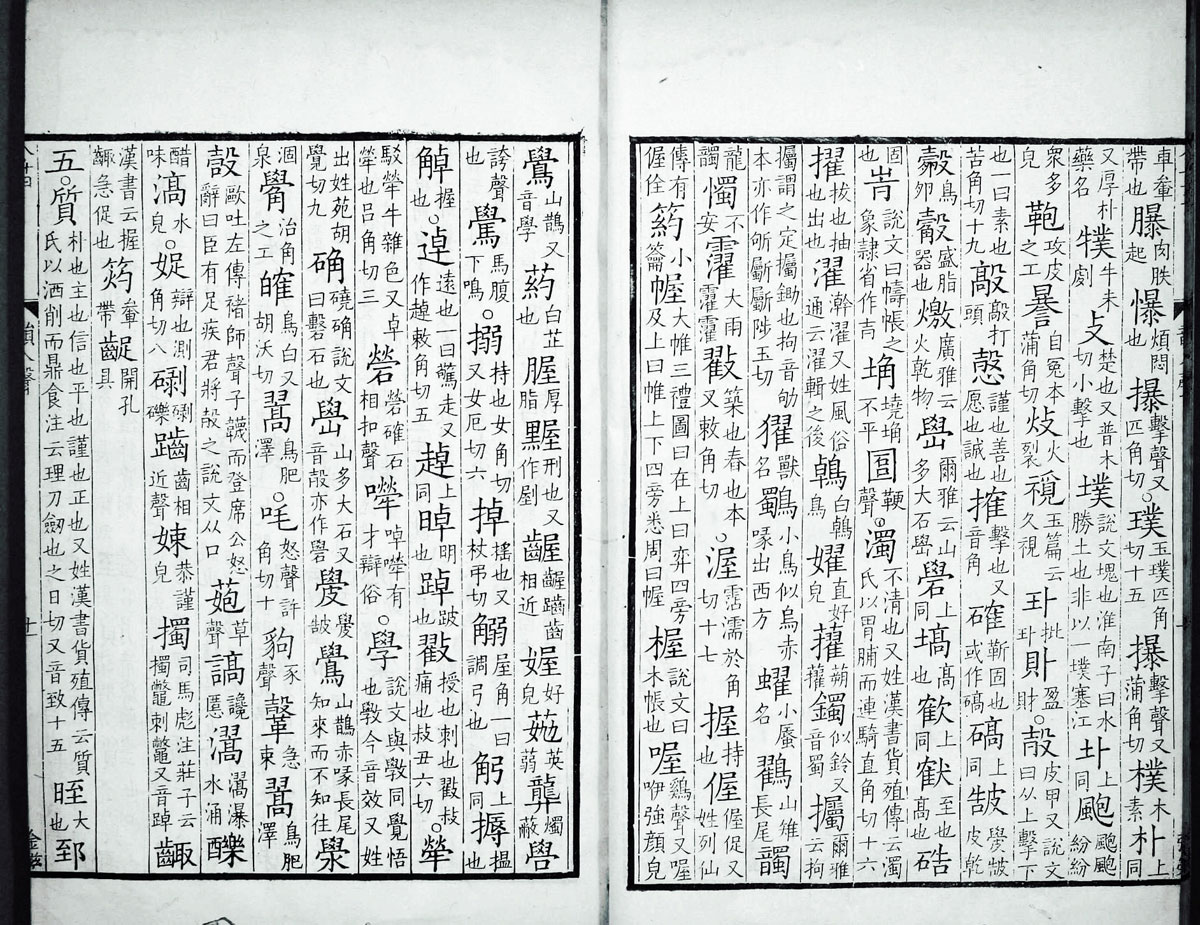 車輂帶也𦢊肉胅起爆煩悶也㩧擊聲又匹角切。璞玉璞匹角切十五㩧擊聲又蒲角切樸木素朴上同
又厚朴藥名㹒牛未劇攴楚也又普木切小擊也墣說文塊也淮南子曰水勝土也非以一墣塞江圤上同颮颮颮紛紛
眾多皃鞄攻皮之工㬥自冤本蒲角切炇火裂玉篇云久視批盈財。㱿皮甲又說文曰从上擊下
也一曰素也苦角切十九㪣㪣打頭愨謹也善也愿也誠也搉擊也又音角確靳固也或作碻碻上同㱿皵皮乾
鷇鳥卵瑴盛脂器也燩廣雅云火乾物嶨爾雅云山多大石嶨礐上同塙高也㰌上同㩁至也高也硞
固也𡴋說文曰幬帳之象隷省作青埆墝埆不平𡇈鞕聲。濁不清也又姓漢書貨殖傳云濁氏以胃脯而連騎直角切十六
擢拔也抽也出也濯澣濯又姓風俗通云濯輯之後鵫白鵫鳥嬥直好皃蠗蠗蒴鐲似鈴又音蜀㩣爾雅云拘
㩣謂之定㩣鋤也拘音劬本亦作斪斸斸陟玉切玃獸名鸀小鳥似烏赤喙出西方蠗小蜃名鸐山雉長尾髑
龍髑㦌不安䨥大雨䨥䨥戳築也舂也本又敕角切。渥霑濡於角切十七握持也偓偓促又姓列仙
傳有偓佺箹小籥幄大帷三禮圖曰在上曰帟四旁及上曰帷上下四旁悉周曰幄楃說文曰木帳也喔鷄聲又喔咿強顏皃
鷽山鵲又音學葯白芷也腛厚脂𪑱刑也又作剭齷齷齪齒相近媉好皃英蒻燭蔽嚳
誇聲也鷽馬腹下鳴。搦持也女角切又女厄切六掉搖也又杖弔切𧤴屋角一曰調弓也𧢼上同搙搵也
𧤼握也。逴遠也一曰驚走又作趠敕角切五趠上同晫明也踔跛也戳授也刺也戳敊痛也敊丑六切。犖
駁犖牛雜色又卓犖也呂角切三硦硦確石相扣聲𠻜啅𠻜有才辯俗。學說文與斅同覺悟也斅今音效又姓
出姓苑胡覺切九确磽确說文曰礊石也嶨山多大石又音㱿亦作礐㿱觷皵鷽山鵲赤喙長尾知來而不知往澩
涸泉觷治角之工㿥鳥白又胡沃切翯鳥肥澤。吒怒聲許角切十豿豕聲急束翯鳥肥澤
㱿歐吐左傳褚師聲子韤而登席公怒辭曰臣有足疾君將㱿之說文从口䓤草聲謞讒慝瀥瀥瀑水涌𨣁
醋味滈水皃。娖辯也測角切八𥖻𥖻礫齒相近聲娕恭謹皃擉司馬彪注莊子云擉鼈刺鼈又音踔齱
漢書云握齱急促也箹輂帶齪開孔具
五。質朴也主也信也平也謹也正也又姓漢書貨殖傳云質氏以洒削而鼎食注云理刀劒也之日切又音致十五晊大也郅